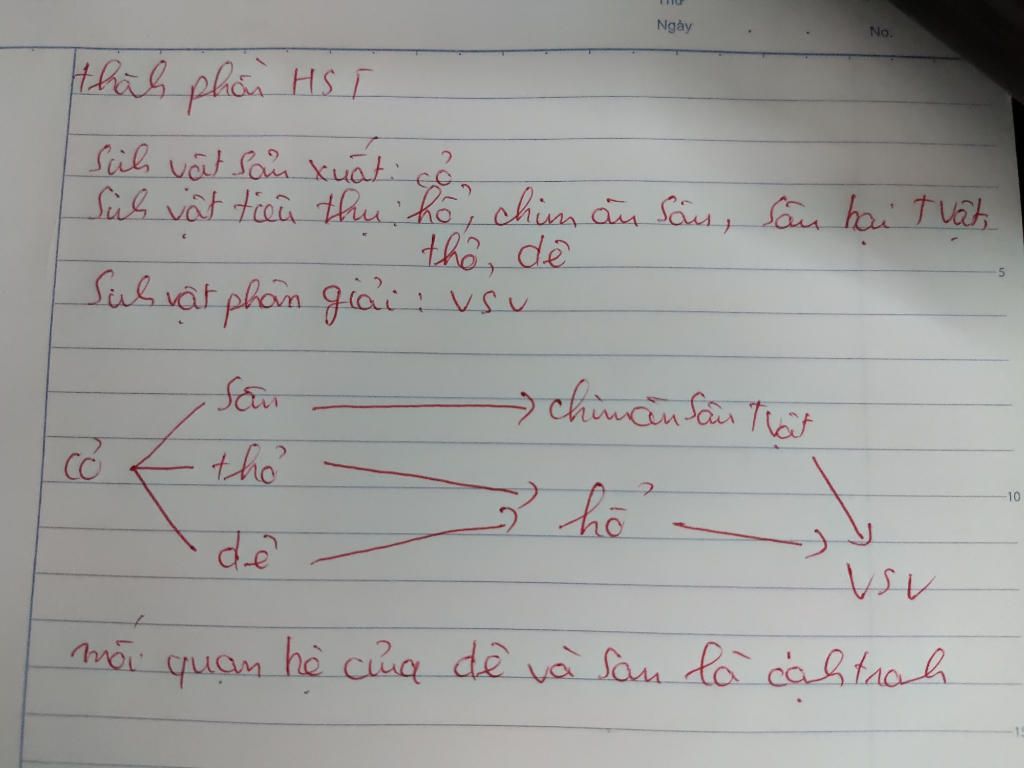 Thứ
Ngày . . No.
thành phần HST
Sinh vật sản xuất: cỏ
Sinh vật tiêu thụ: hổ, chim ăn sâu, sâu hại Tvật,
thỏ, dê
5
Sinh vật phân giải: VSV
Sâu → chim ăn sâu Tvật
cỏ thỏ
10
hổ →
dê
VSV
mối quan hệ của dê và sâu là cạnh tranh
15